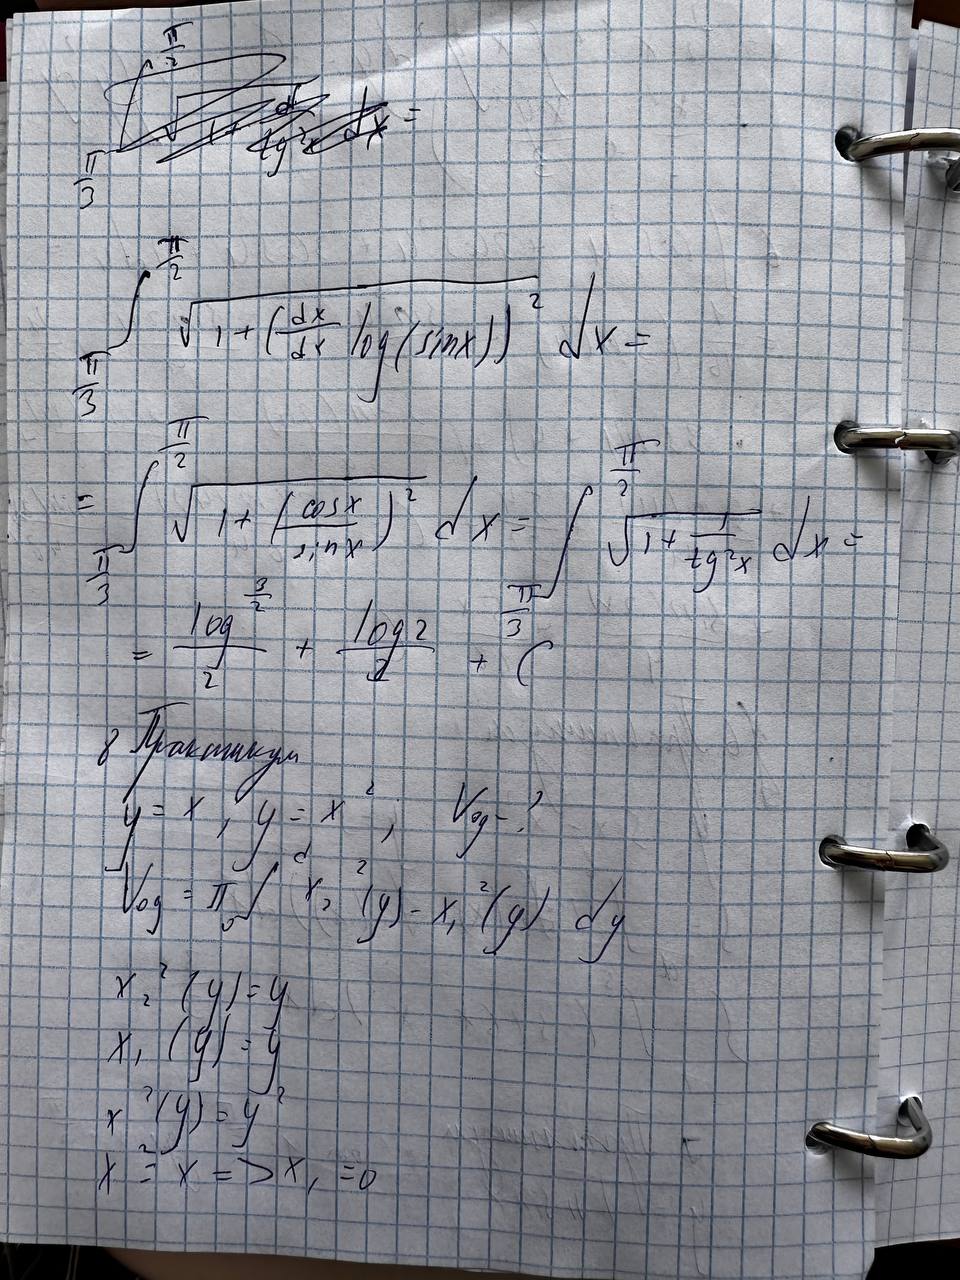 ∫_{π/3}^{π/2} √(1 + (dx/dx log(sinx))²) dx =
= ∫_{π/3}^{π/2} √(1 + (cosx/sinx)²) dx = ∫_{π/3}^{π/2} √(1 + 1/tg²x) dx =
= log^{3/2}/2 + log2/2 + (
8 Практикум
y = x, y = x²; V_oy - ?
V_oy = π ∫_0^d x₂²(y) - x₁²(y) dy
x₂²(y) = y
x₁(y) = y
x²(y) = y²
x² = x => x₁ = 0